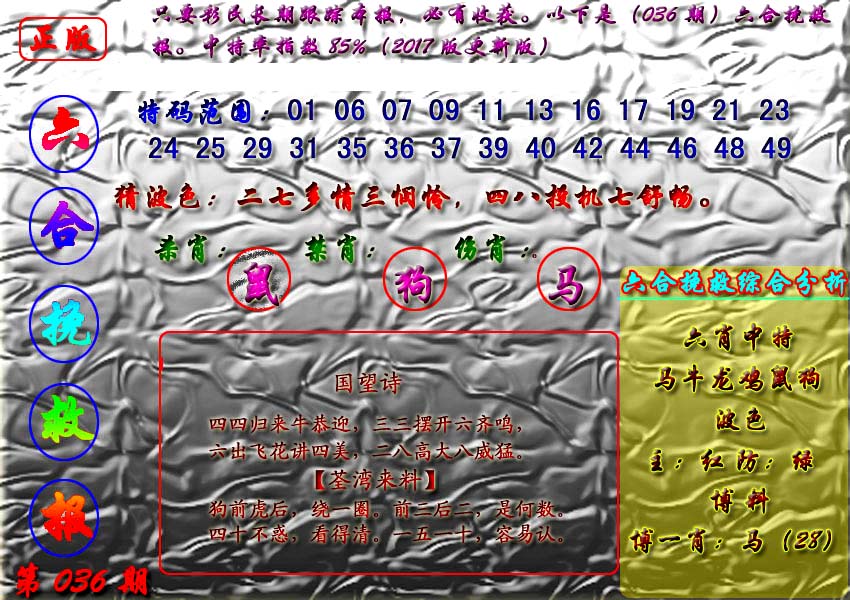 只要彩民长期跟踪本报，必有收获。以下是（036期）六合挽救
报。中特率指数85%（2017版更新版）
正版
六合挽救报
第036期
特码范围：01 06 07 09 11 13 16 17 19 21 23
24 25 29 31 35 36 37 39 40 42 44 46 48 49
猜波色：二七多情三悯怜，四八投机七舒畅。
杀肖：鼠 禁肖：狗 伤肖：马
国望诗
四四归来牛恭迎，三三摆开六齐鸣，
六出飞花讲四美，二八高大八威猛。
【荃湾来料】
狗前虎后，绕一圈。前三后二，是何数。
四十不惑，看得清。一五一十，容易认。
六合挽救综合分析
六肖中特
马牛龙鸡鼠狗
波色
主：红防：绿
博料
博一肖：马（28）